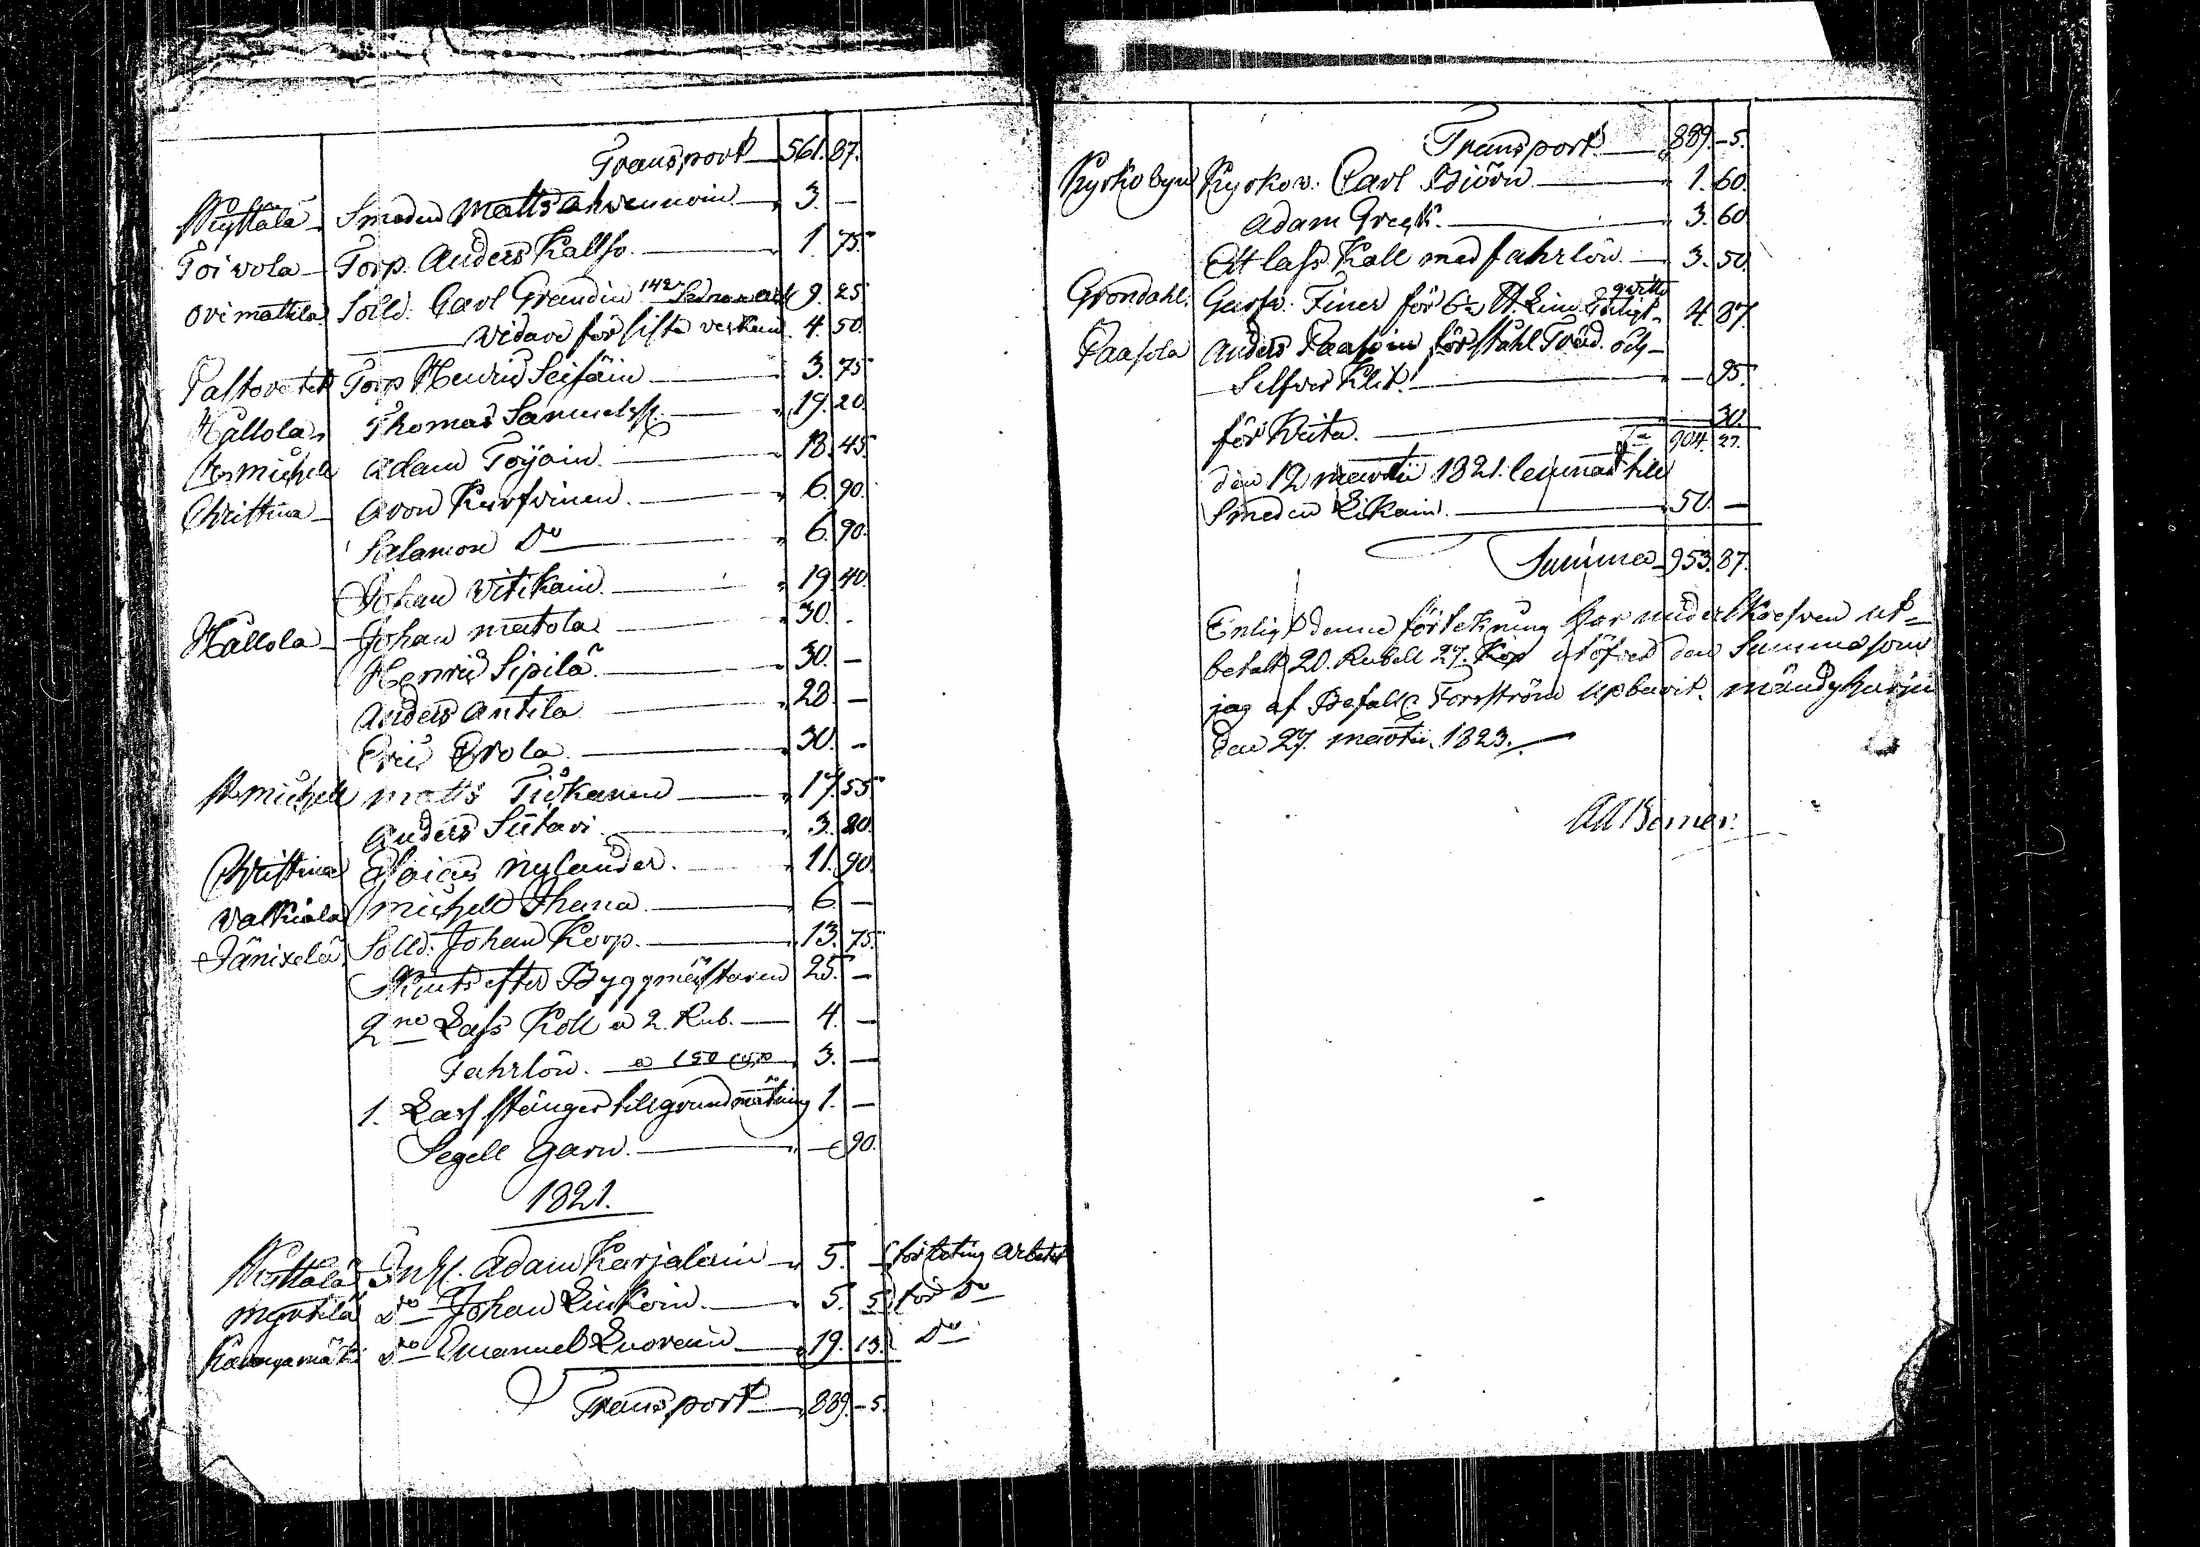 Transport — 561. 87.
Nyttälä Smeden Matts Ahvennoin — 3. —
Toivola — Torp. Anders Kallso — 1. 75.
Ovimattila Solld. Carl Grandin 9. 25
Vidare för sista verkan 4. 50
Torp Henric Seisäin — 3. 75
Hållola Thomas Samuelss. — 19. 20
St Michell Adam Töyöin — 18. 45
Christina — Aron Kurfvinen — 6. 90.
Salamon Do — 6. 90.
Johan Vitikain — 19. 40.
Hållola — Johan Matola — 30. -
Henric Sipilä — 30. —
Anders Antila — 28. —
Eric Erola — 30. -
St Michell Matts Tiškanen — 17. 55
Anders Siitari — 3. 80.
Christina Esaias Nylander. — 11. 90.
Valkiala Michell Ihana — 6 —
Jänixelä Solld. Johan Korp. — 13. 75.
efter Byggmästaren 25. —
2ne Lass Koll a 2. Rub. — 4. —
Fahrlön. a 150 Cop 3. —
1. Lass stänger till grundmätning 1. —
Segell Garn. — 90.
1821.
Nyttälä Inh. Adam Karjalain — 5. — för beting Arbete
Myrtilä Do Johan Linkoin. — 5. 5. för Do
Do Emanuel Luovain — 19. 13. Do
Transport — 889. - 5.
Transport — 889. - 5.
Kyrkobyn Kyrkov. Carl Biörn — 1. 60.
Adam Greek. — 3. 60
Ett lass Koll med fahrlön. — 3. 50
Gröndahl. Gustv. Finer för 6 ℔ Lim Enligt qvitto 4. 87.
Paasola Anders Paasoin för ståhl Tråd. och —
Silfver Klit. — 95.
för Krita. — 30.
904. 27.
den 12 Martii 1821. lemnadt till
Smeden Eskain. — 50. —
Summa — 953. 87.
Enligt denne förtekning har underskrefven ut-
betalt 20. Rubell 27. Kop utöfver den Summa som
jag af Befall. Forsström upburit. Mändyharju
den 27. Martii. 1823.